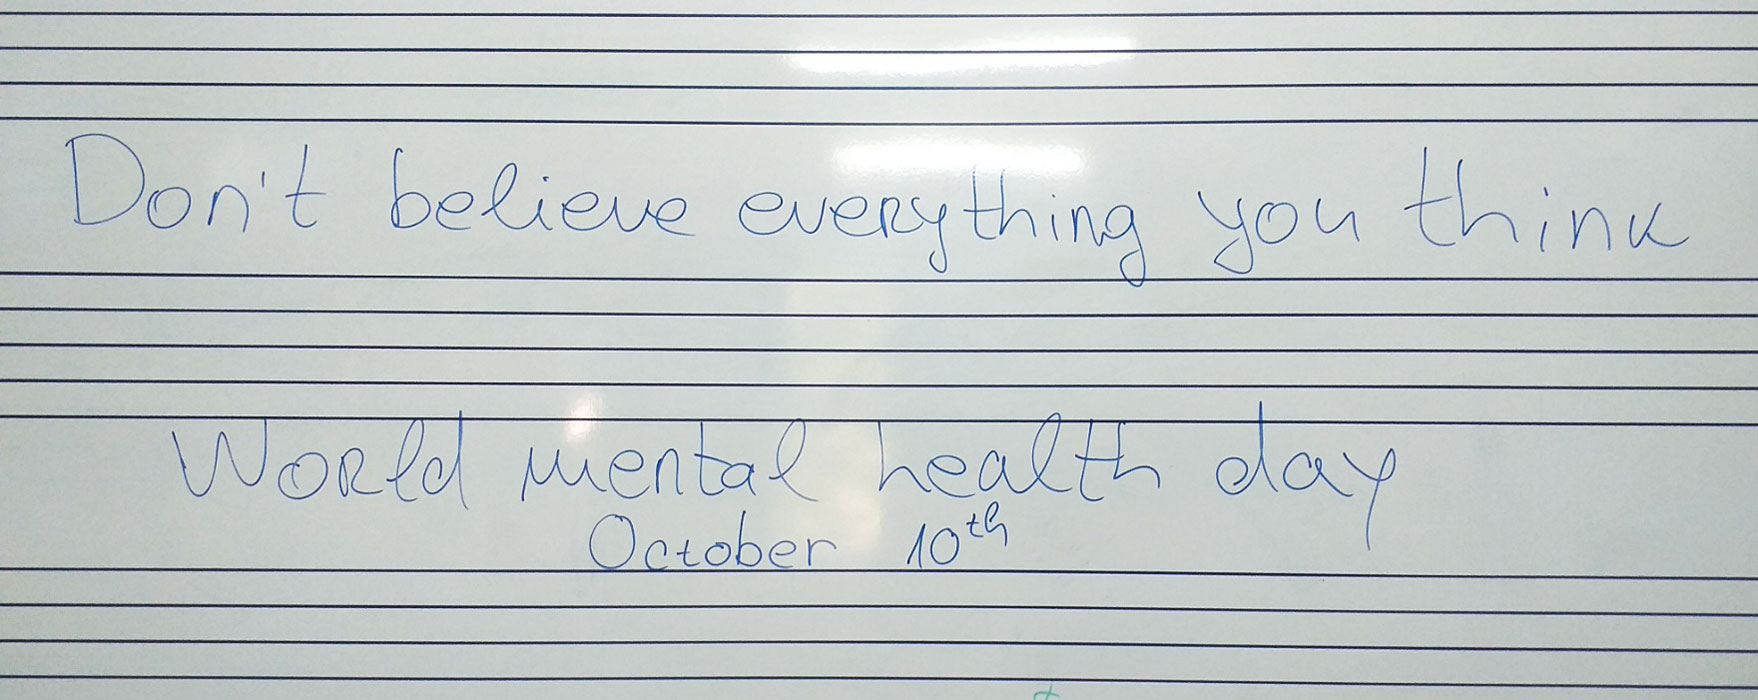 Don't believe everything you think
World mental health day
October 10th